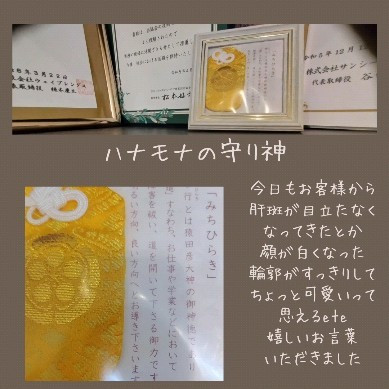 株式会社ウェイブレンダ
代表取締役
令和6年12月
株式会社サンシ
代表取締役 谷
ハナモナの守り神
「みちひらき」
行とは猿田彦大神の御神徳であり
害を祓い、道を開いて下さる御力です
道」すなわち、お仕事や学業などにおいて
るい方向、良い方向へとお導き下さいます
今日もお客様から
肝斑が目立たなく
なってきたとか
顔が白くなった
輪郭がすっきりして
ちょっと可愛いって
思えるetc
嬉しいお言葉
いただきました